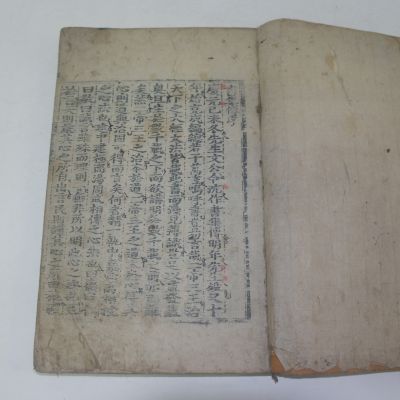 慶元己未冬先生文公令沈作書集傳明年先生歿又十
年始克成編總若干萬言嗚呼書豈易言哉二帝三王治
天下之大經大法皆載此書而淺見薄識豈足以盡發蘊
奧且生於數千載之下而欲講明於數千載之前亦已難
矣然二帝三王之治本於道二帝三王之道本於心得其
心則道與治固可得而言矣何者精一執中堯舜禹相授
之心法也建中建極商湯周武相傳之心法也曰德曰仁
曰敬曰誠言雖殊而理則一無非所以明此心之妙也至
於言天則嚴其心之所自出言民則謹其心之所由